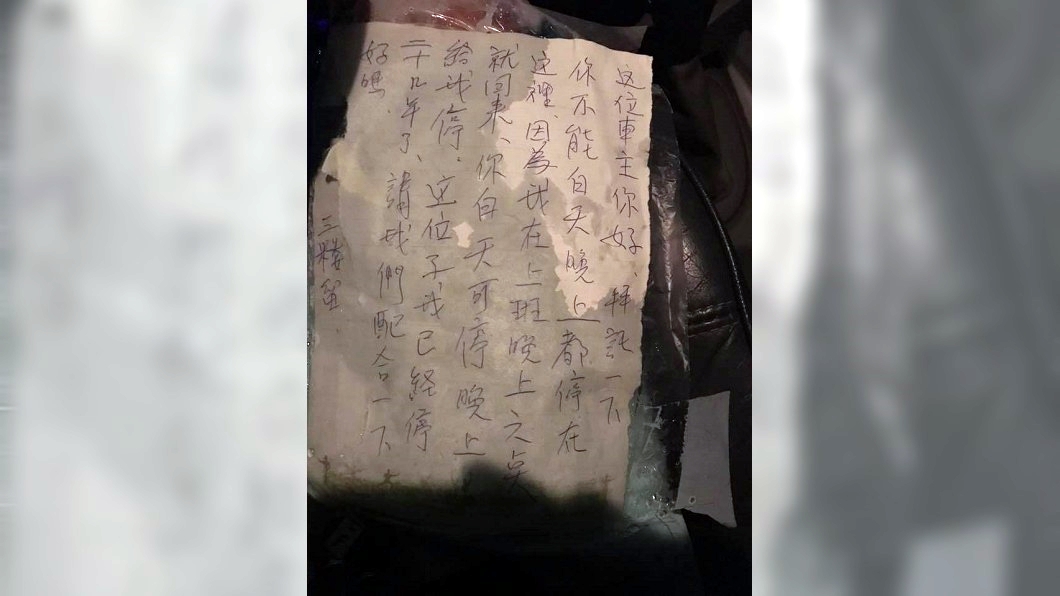 这位車主你好、拜託一下
你不能白天晚上都停在
这裡、因為我在上班晚上六点
就回來、你白天可停晚上
給我停．这位子我已経停
二十几年了、請我們配合一下
好嗎．
三楼留．